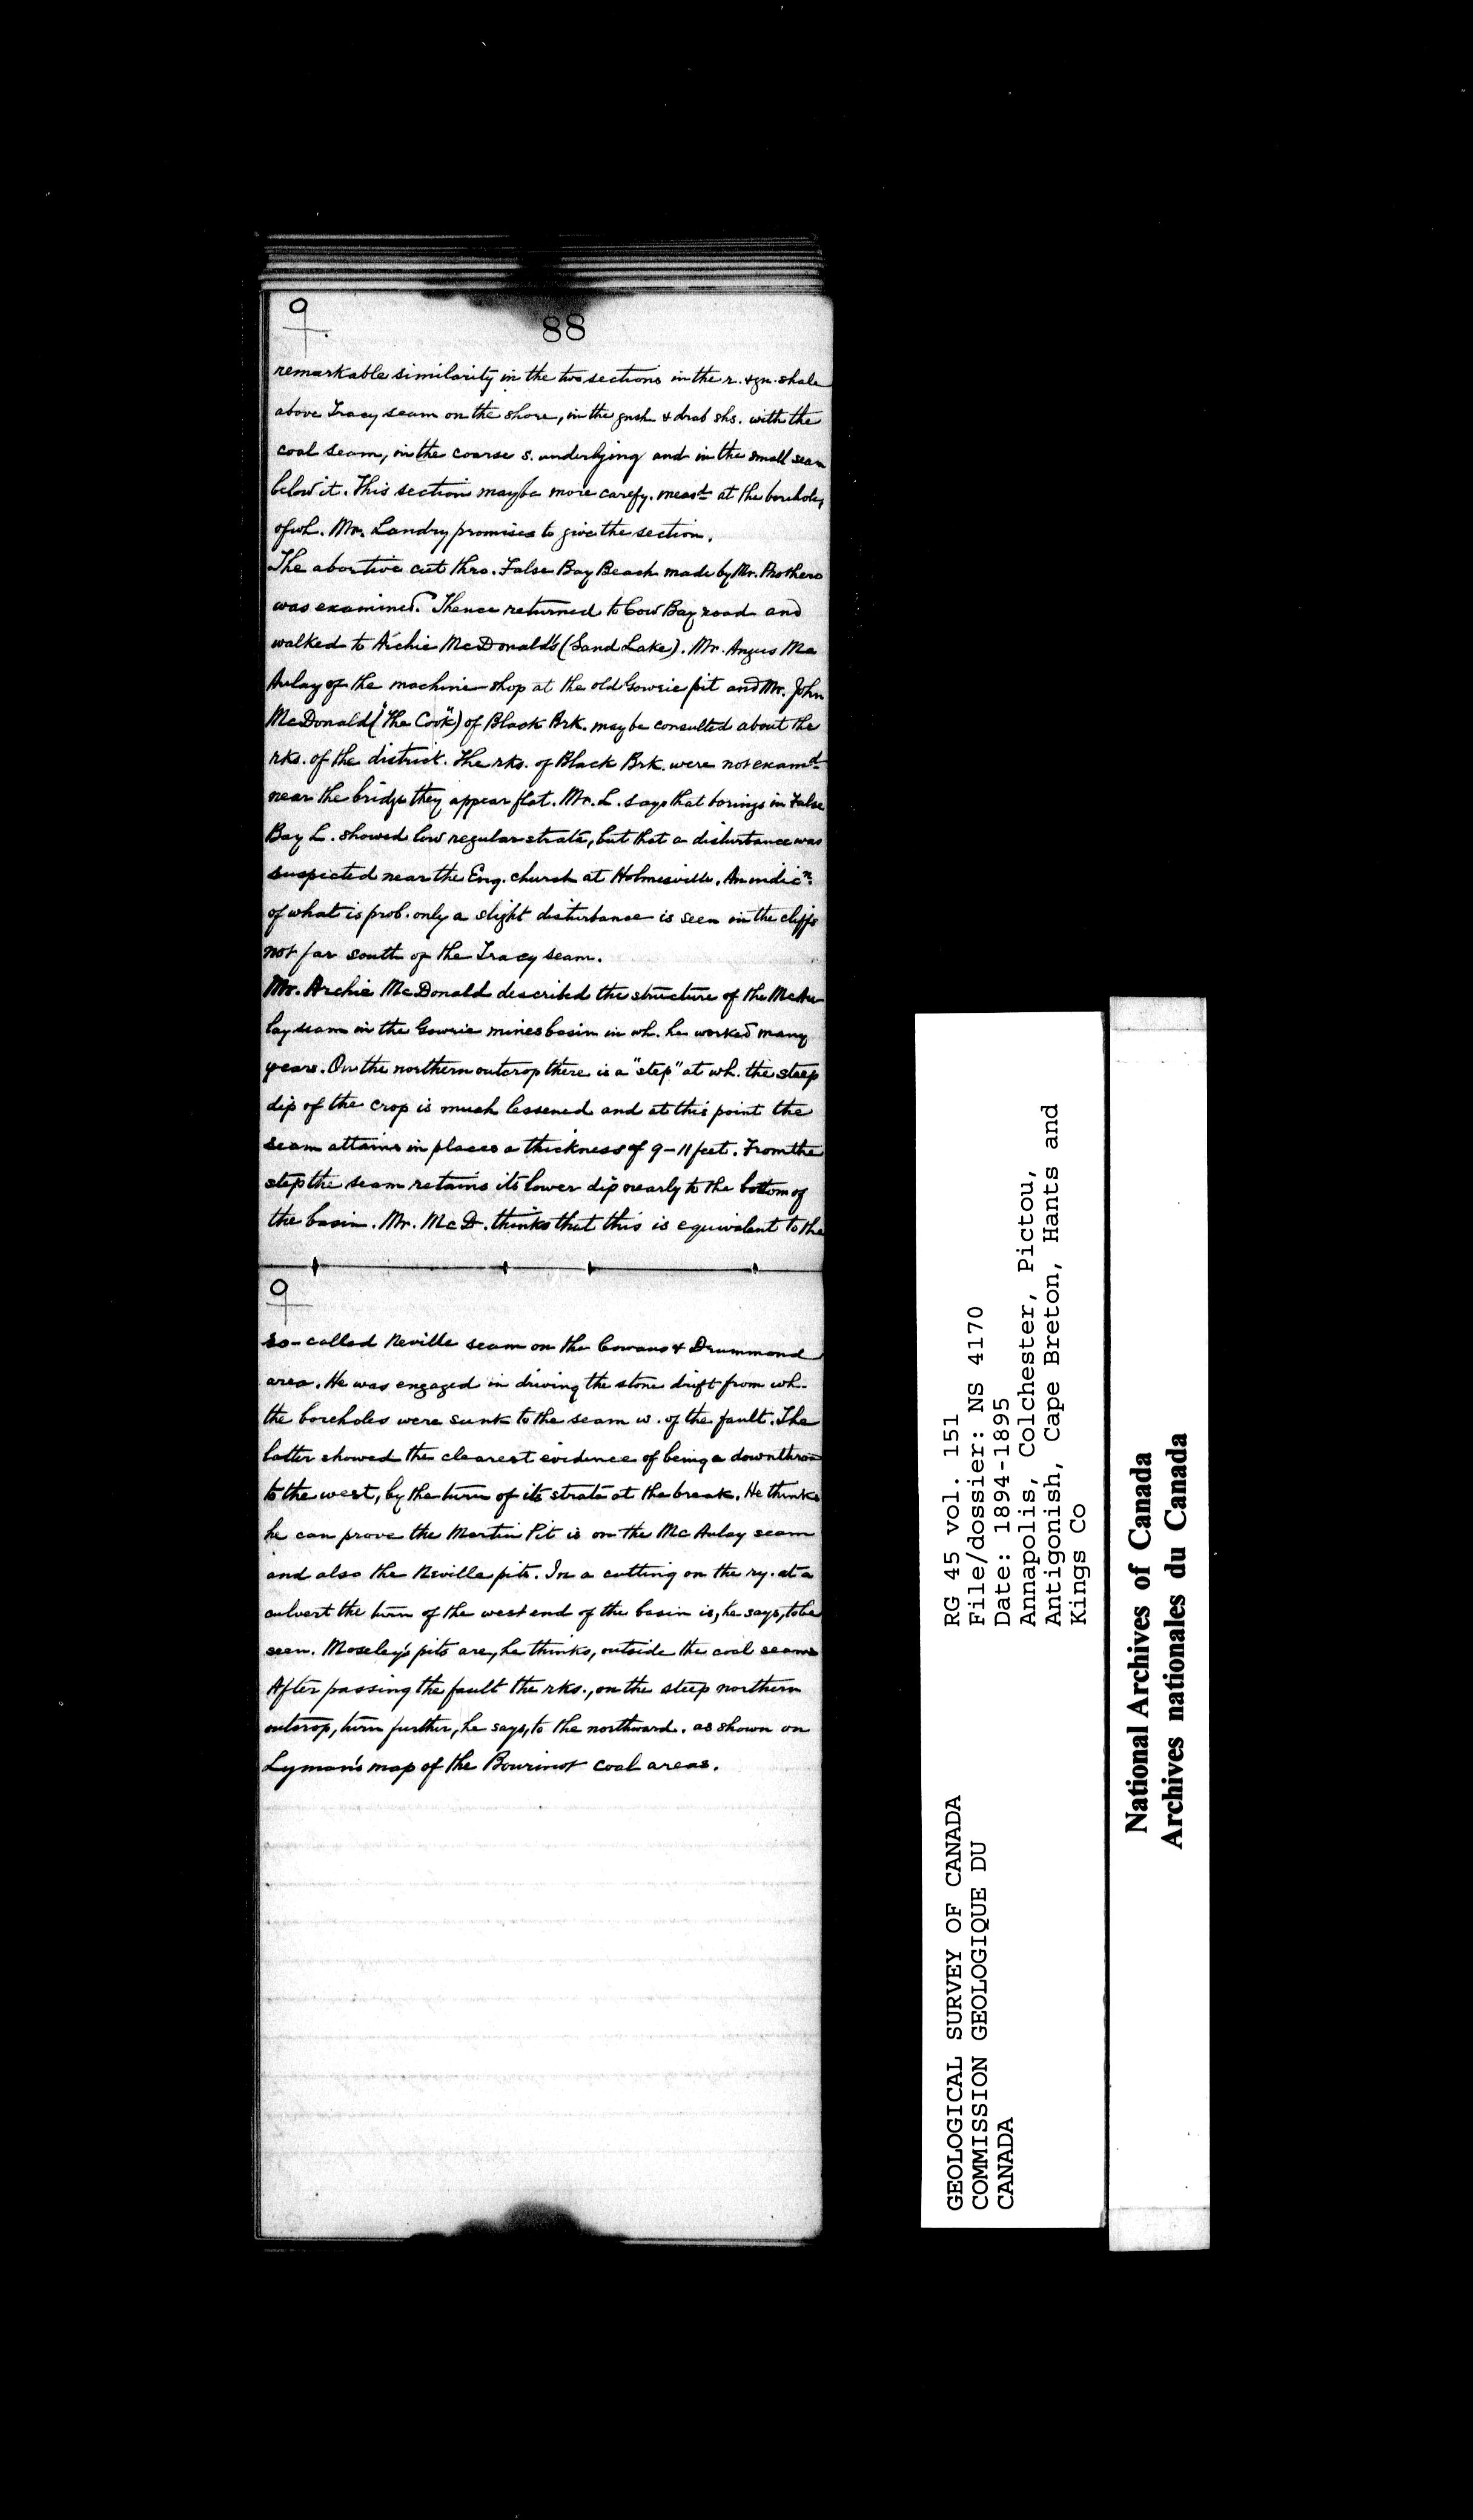 88
remarkable similarity in the two sections in the r. & gn. shale
above Tracy seam on the shore, in the gnsh & drab shs. with the
coal seam, in the coarse s. underlying and in the small seam
below it. This section may be more carefy. measd at the boreholes,
of wh. Mr. Landry promises to give the section.
The abortive cut thro. False Bay Beach made by Mr. Brothers
was examined. Thence returned to Cow Bay road and
walked to Archie McDonald's (Sand Lake). Mr. Angus Mc
Aulay of the machine-shop at the old Gowrie pit and Mr. John
McDonald ("The Cook") of Black Brk. may be consulted about the
rks. of the district. The rks. of Black Brk. were not examd
near the bridge they appear flat. Mr. L. says that borings in False
Bay L. showed low regular strata, but that a disturbance was
suspected near the Eng. church at Holmesville. An indicn.
of what is prob. only a slight disturbance is seen in the cliffs
not far south of the Tracy seam.
Mr. Archie McDonald described the structure of the McAu-
lay seam in the Gowrie mines basin in wh. he worked many
years. On the northern outcrop there is a "step" at wh. the steep
dip of the crop is much lessened and at this point the
seam attains in places a thickness of 9-11 feet. From the
step the seam retains its lower dip nearly to the bottom of
the basin. Mr. McD. thinks that this is equivalent to the
so-called Neville seam on the Gowans & Drummond
area. He was engaged in driving the stone drift from wh.
the boreholes were sunk to the seam w. of the fault. The
latter showed the clearest evidence of being a downthrow
to the west, by the turn of its strata at the break. He thinks
he can prove the Martin Pit is on the McAulay seam
and also the Neville pits. In a cutting on the ry. at a
culvert the turn of the west end of the basin is, he says, to be
seen. Moseley's pits are, he thinks, outside the coal seams
After passing the fault the rks., on the steep northern
outcrop, turn further, he says, to the northward. as shown on
Lyman's map of the Bourinot coal areas.
GEOLOGICAL SURVEY OF CANADA
COMMISSION GEOLOGIQUE DU
CANADA
RG 45 vol. 151
File/dossier: NS 4170
Date: 1894-1895
Annapolis, Colchester, Pictou,
Antigonish, Cape Breton, Hants and
Kings Co
National Archives of Canada
Archives nationales du Canada